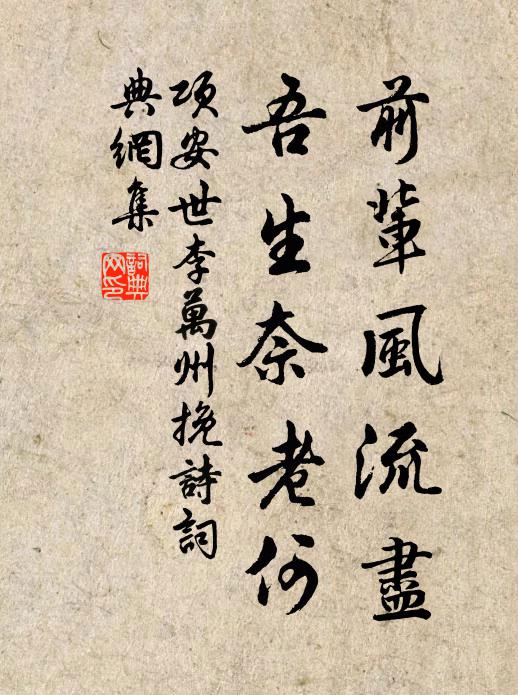 前輩風流盡
吾生奈老何
項安世李萬州挽詩詞
典網集
詞典網印